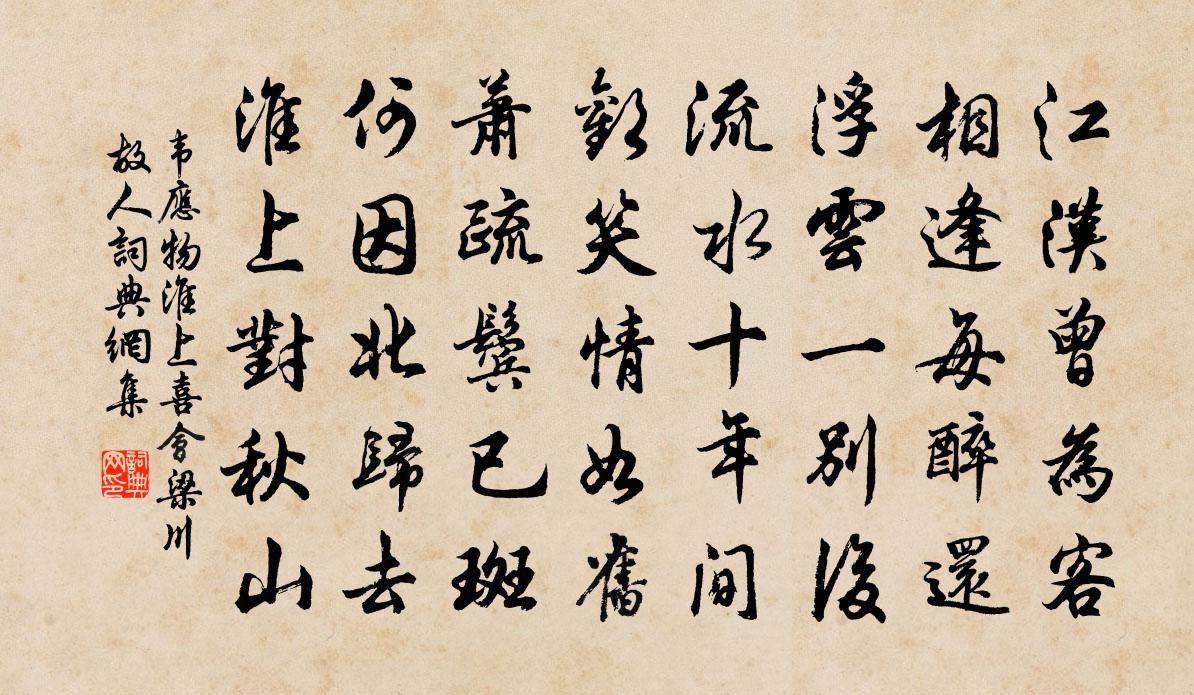 江漢曾為客
相逢每醉還
浮雲一別後
流水十年間
歡笑情如舊
蕭疏鬢已斑
何因北歸去
淮上對秋山
韦應物淮上喜會梁川
故人詞典網集
詞典
网印